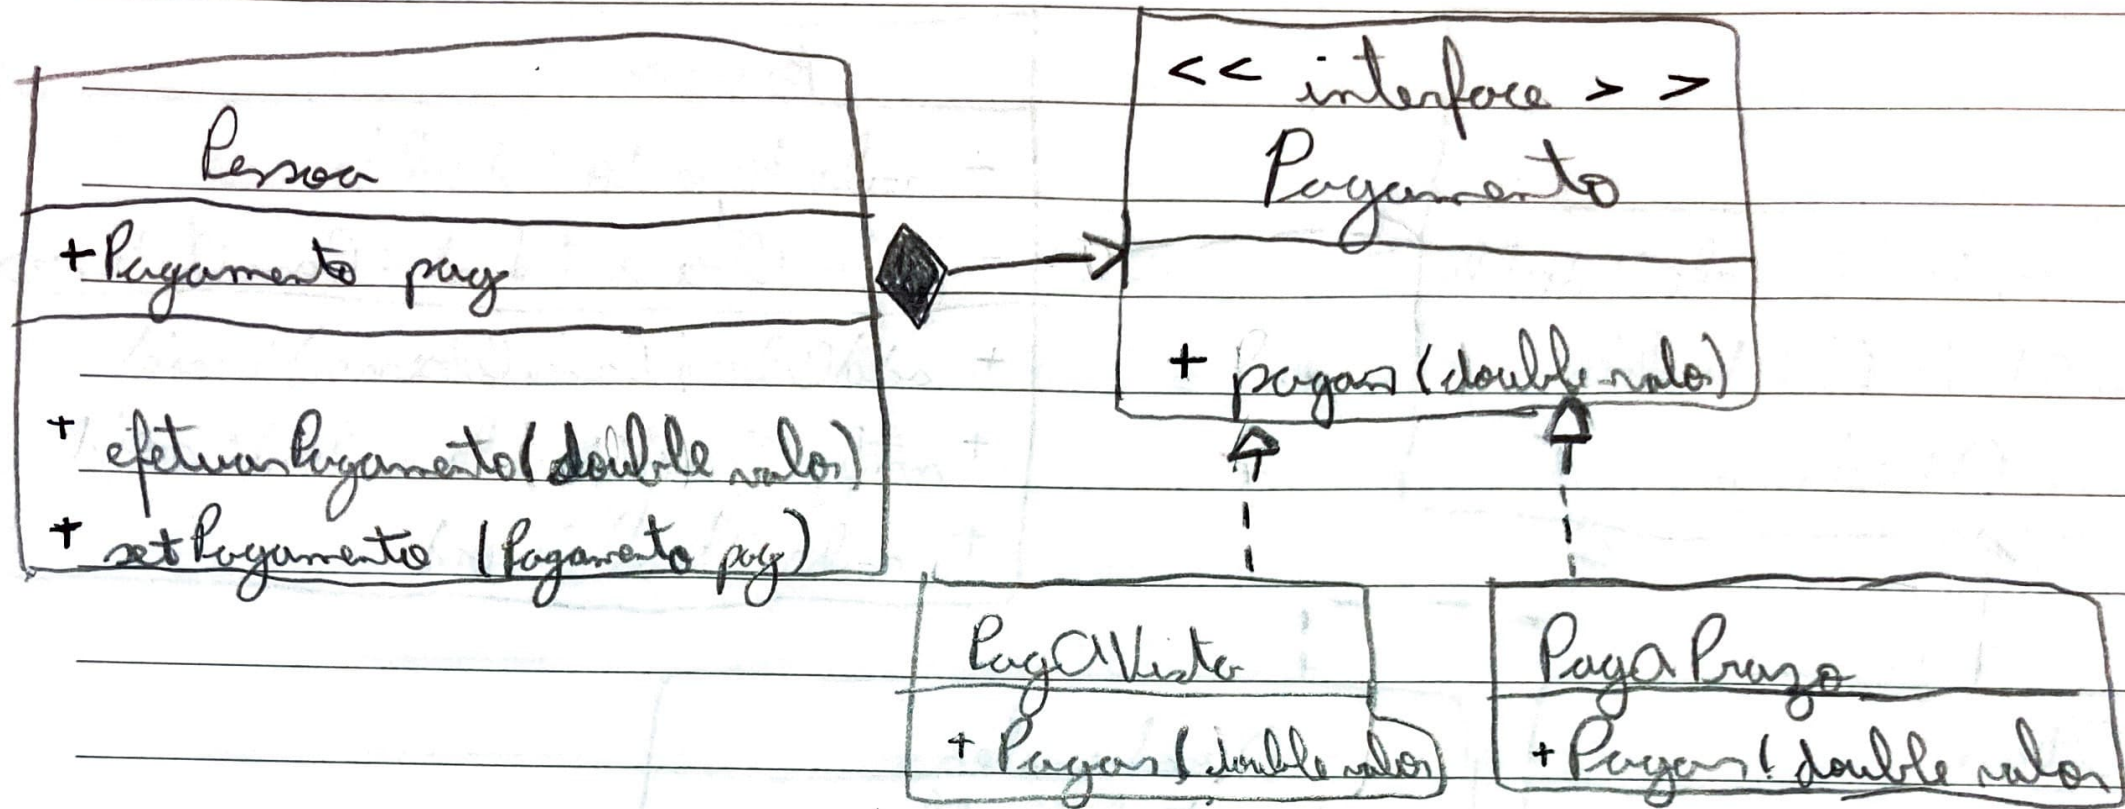 Pessoa
+ Pagamento pag
+ efetuarPagamento(double valor)
+ setPagamento (Pagamento pag)
<< interface >>
Pagamento
+ pagar (double valor)
PagAVista
+ Pagar (double valor)
PagAPrazo
+ Pagar (double valor